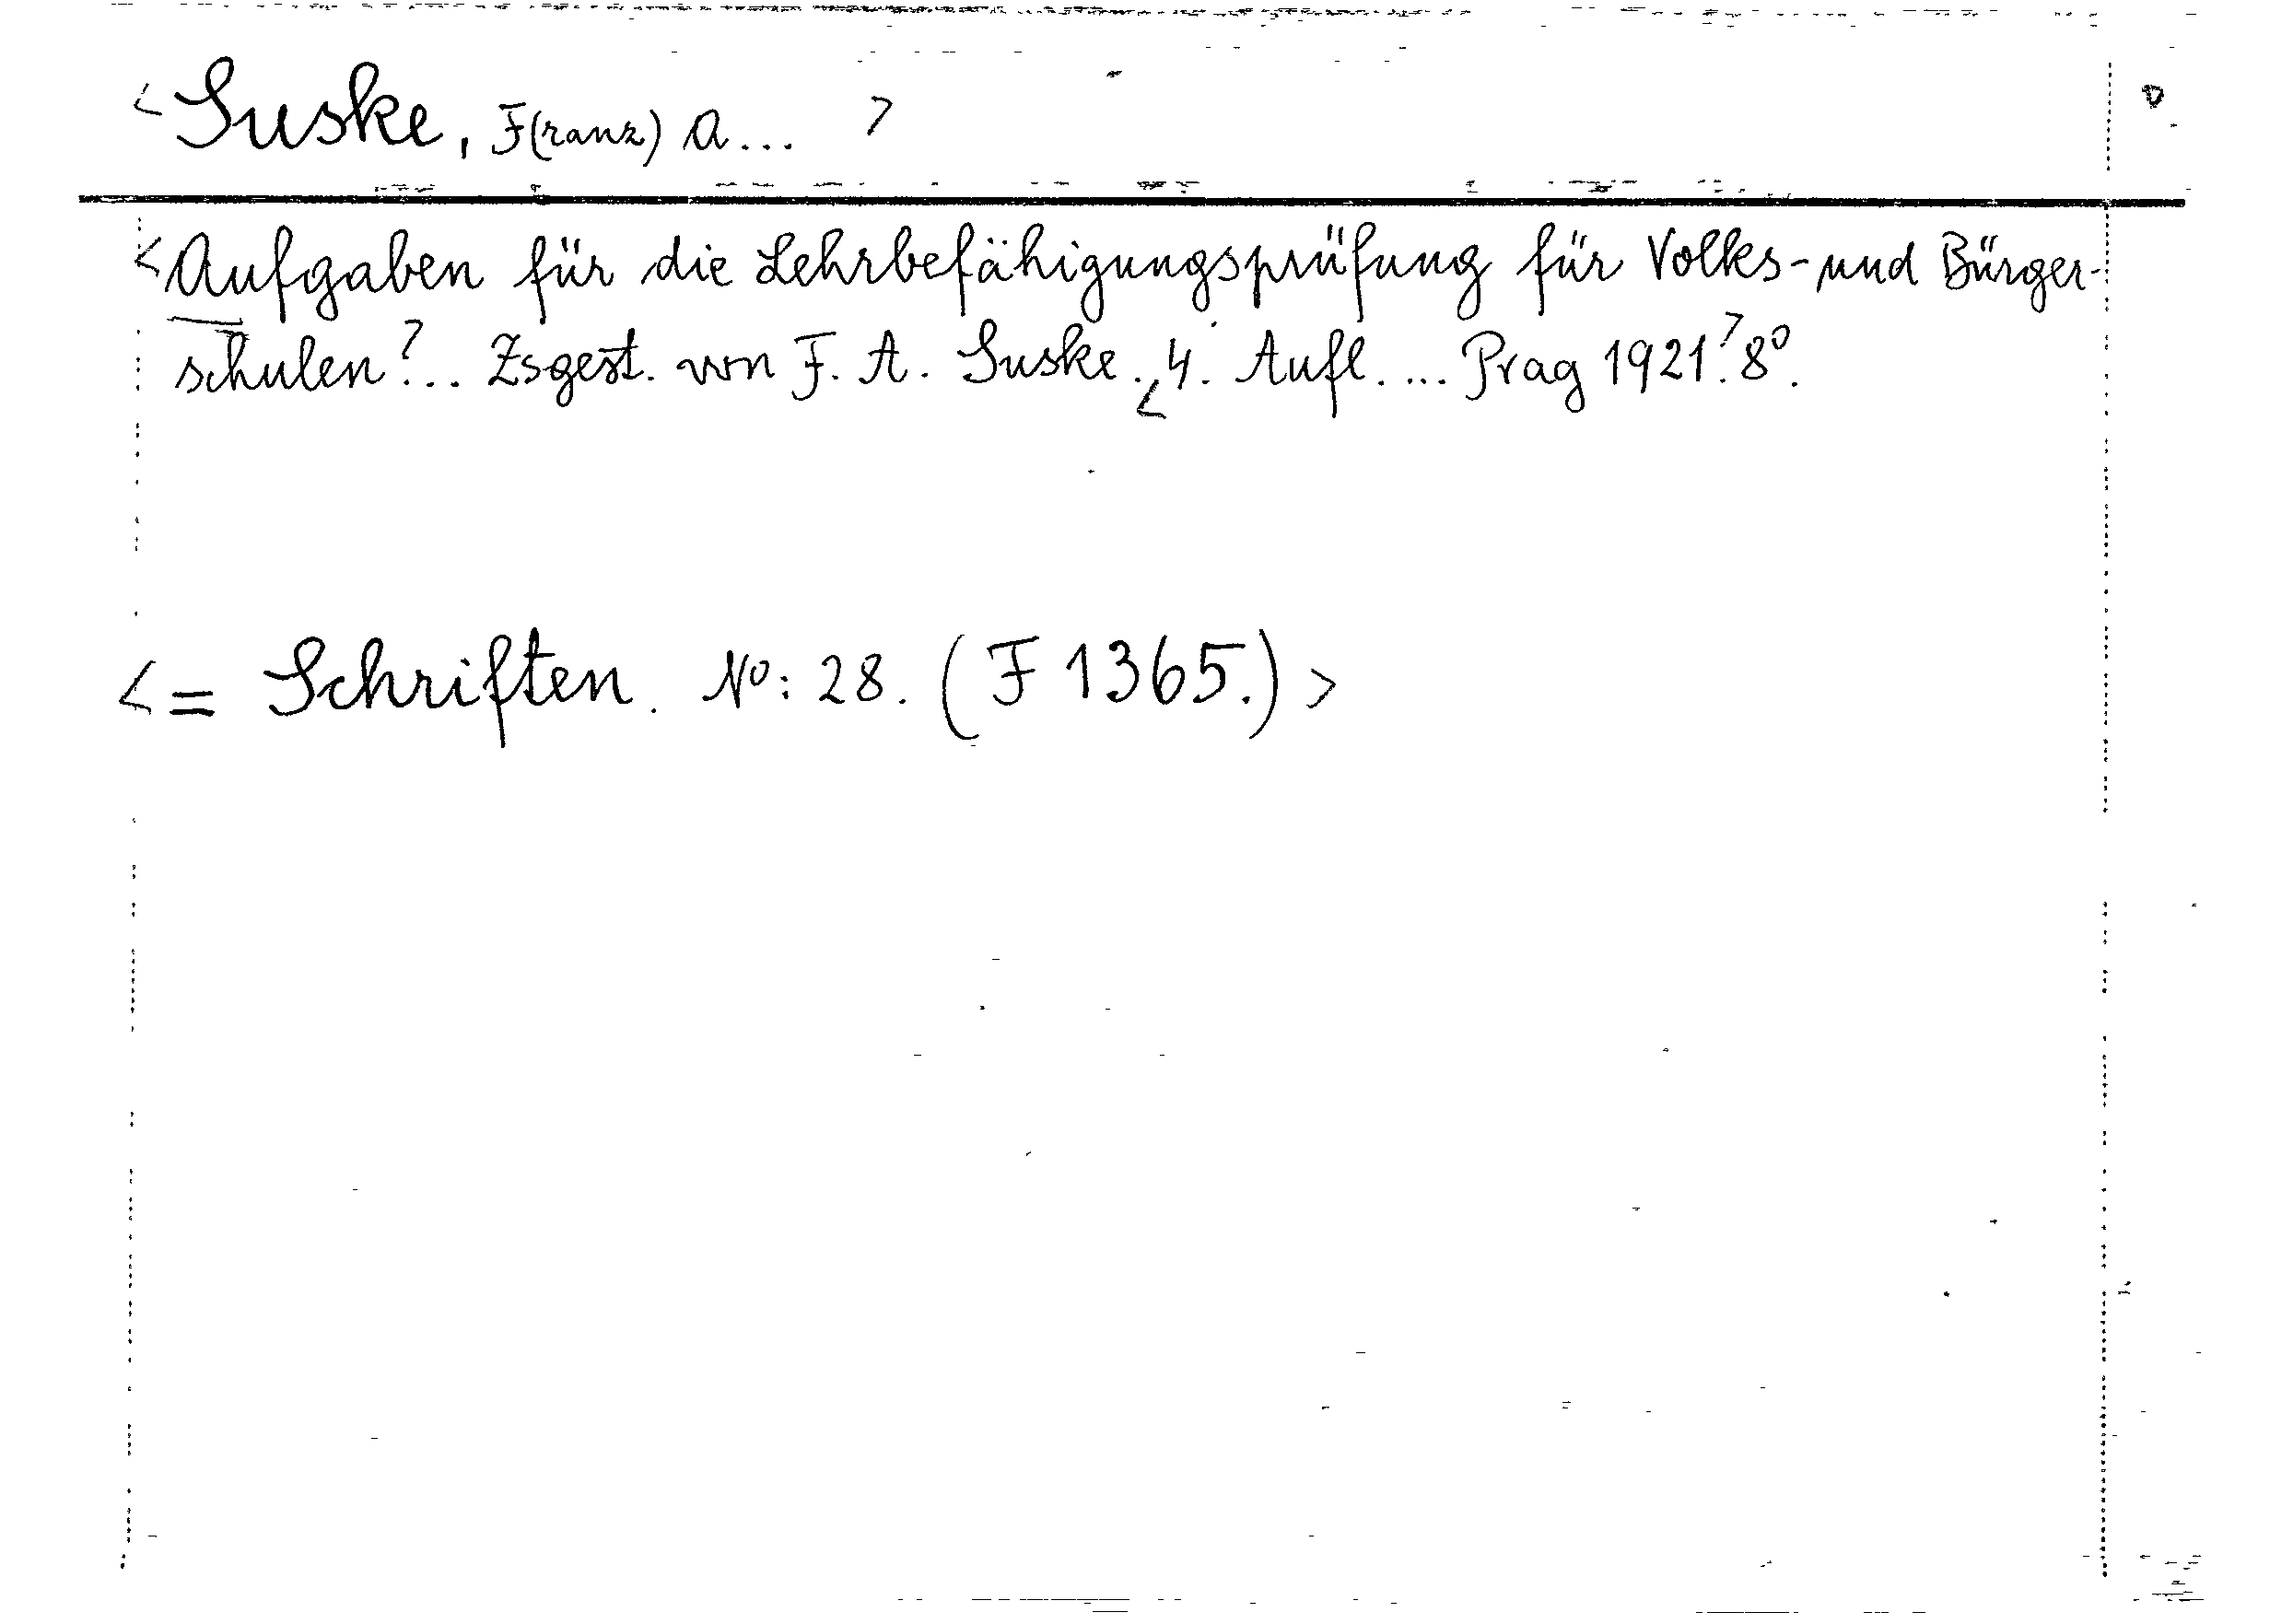 <Suske, F(ranz) A... >
<Aufgaben für die Lehrbefähigungsprüfung für Volks- und Bürger-
schulen>... Zsgest. von F. A. Suske. <4. Aufl. ... Prag 1921.> 8°.
<= Schriften. No: 28. (F 1365.)>